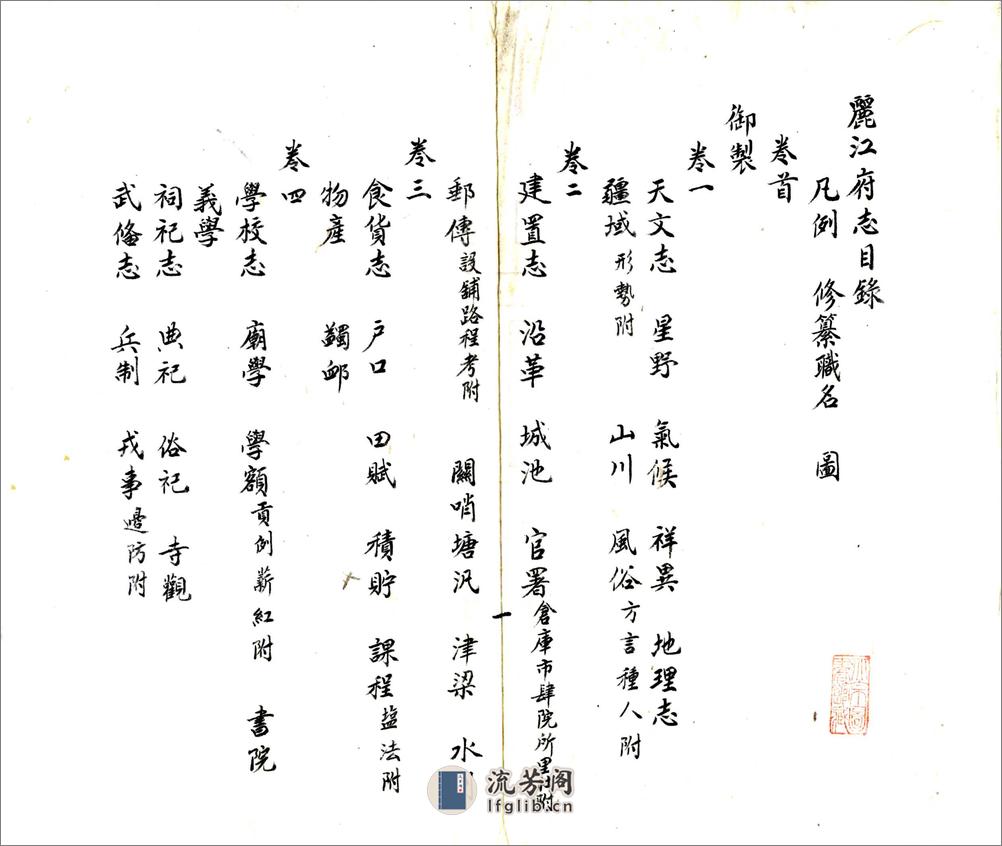 麗江府志目錄
凡例　修纂職名　圖
卷首
御製
卷一
天文志　星野　氣候　祥異　地理志
疆域形勢附　山川　風俗方言種人附
卷二
建置志　沿革　城池　官署倉庫市肆院所里
郵傳設鋪路程考附　關哨塘汛　津梁　水
卷三
食貨志　戶口　田賦　積貯　課程盐法附
物產　蠲卹
卷四
學校志　廟學　學額貢例薪紅附　書院
義學
祠祀志　典祀　俗祀　寺觀
武俻志　兵制　戎事邊防附
一
流芳阁
lfglib.cn